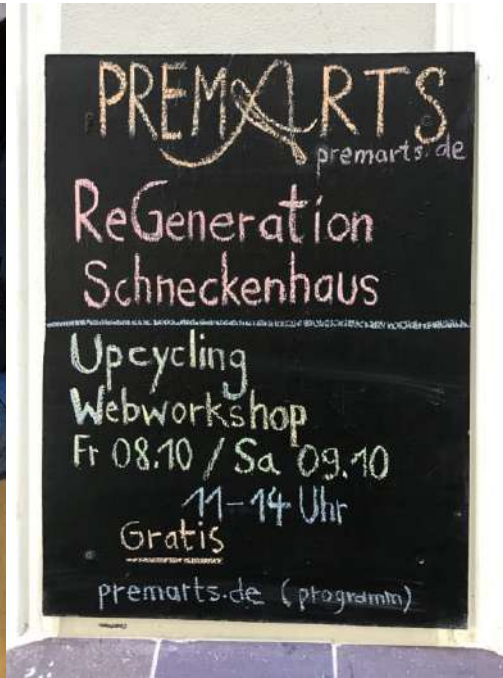 PREMARTS
premarts.de
ReGeneration
Schneckenhaus
Upcycling
Webworkshop
Fr 08.10 / Sa 09.10
11-14 Uhr
Gratis
premarts.de (programm)